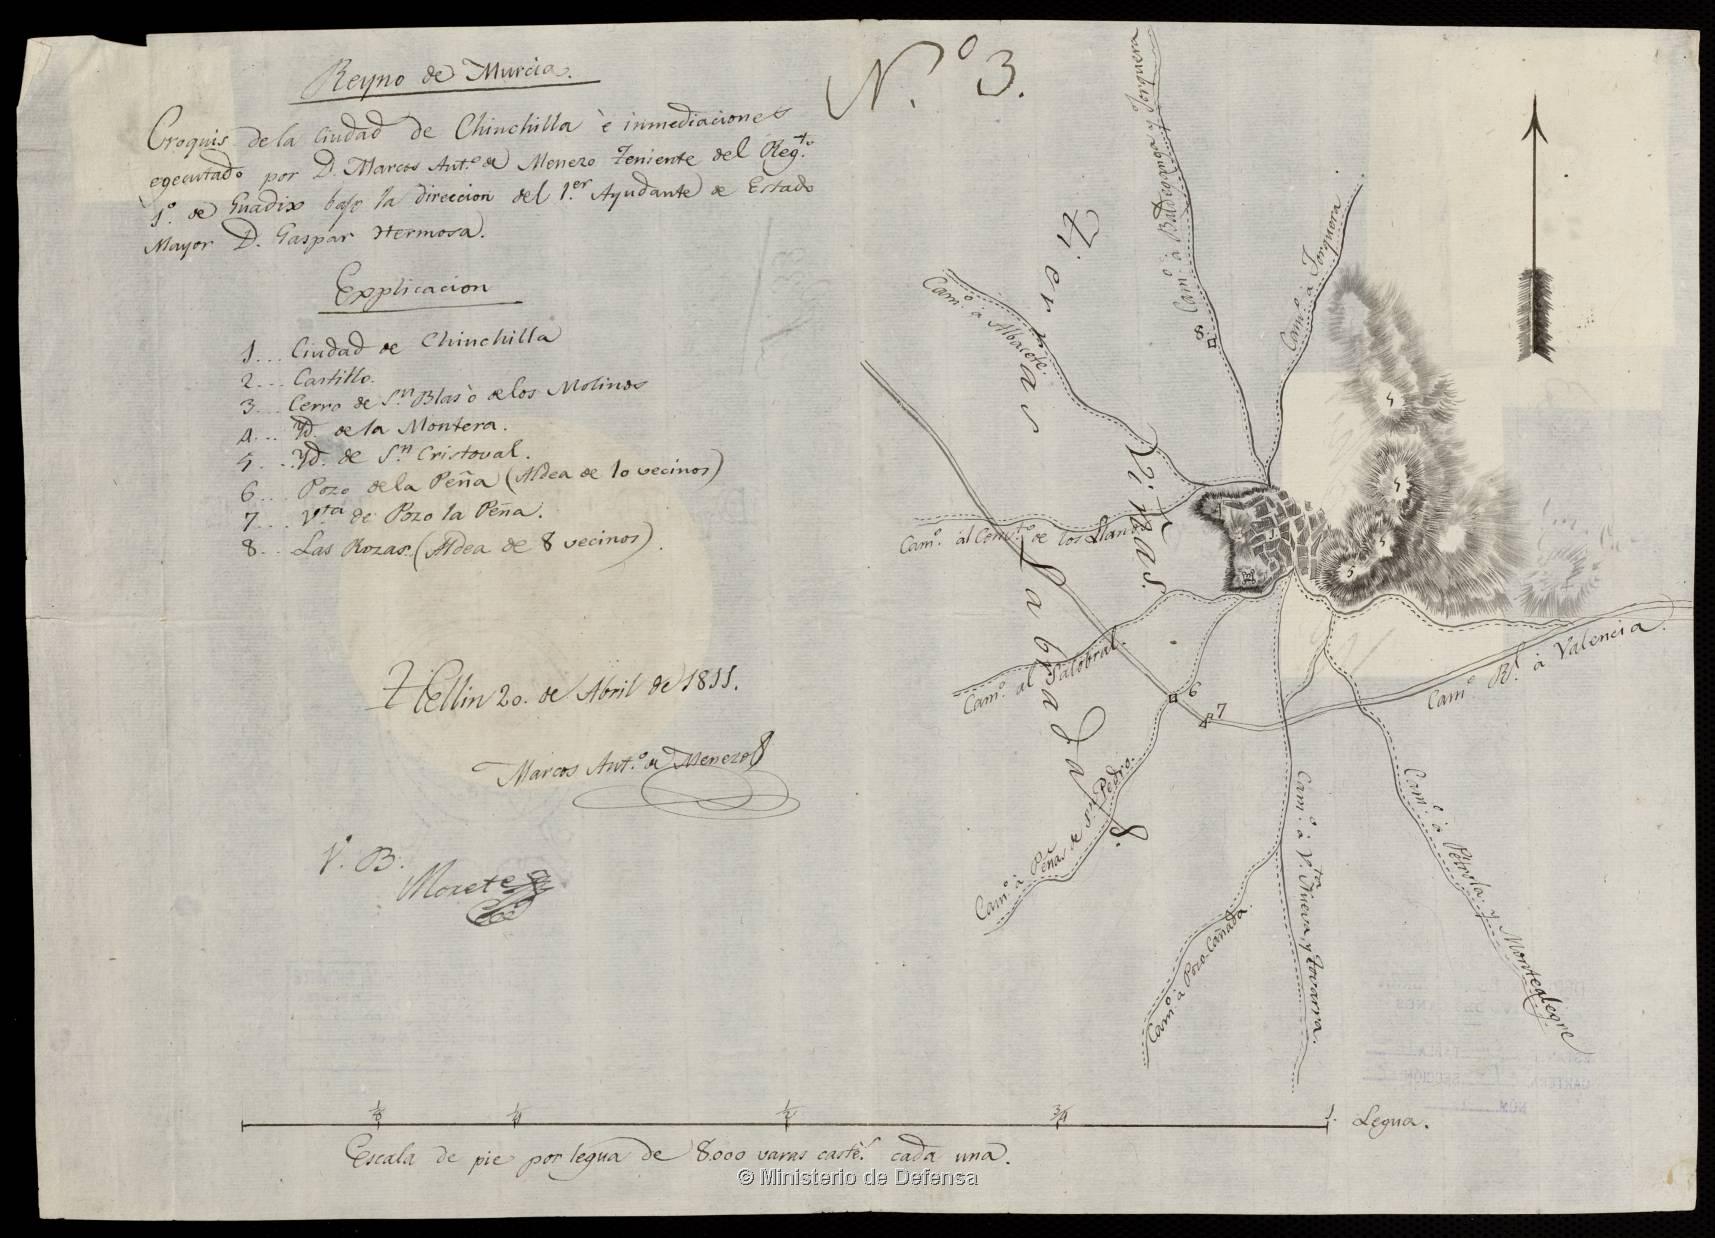 Nº 3.
Reyno de Murcia.
Croquis de la Ciudad de Chinchilla è inmediaciones
egecutado por D. Marcos Antº de Menezo Teniente del Regtº
1º de Guadix bajo la direccion del 1er Ayudante de Estado
Mayor D. Gaspar Hermosa.
Explicacion
1... Ciudad de Chinchilla
2... Castillo.
3... Cerro de Sn Blas ò de los Molinos
4... Yd. de la Montera.
5... Yd. de Sn Cristoval.
6... Pozo de la Peña (Aldea de 10 vecinos)
7... Vta de Pozo la Peña.
8... Las Rozas (Aldea de 8 vecinos).
Hellin 20. de Abril de 1811.
Marcos Antº de Menezo
V. B.
Morete
Camº à Baldeganga y Jorquera
Camº à Jorquera
Camº à Albacete.
Tierras
Viñas.
Labradas.
Camº àl Convtº de los Llanos
Camº al Salobral.
Camº à Peñas de Sn Pedro.
Camº à Pozo-Cañada.
Camº à Vta Nueva, y Tovarra.
Camº à Petrola y Montealegre
Camº Rl à Valencia.
8
5
5
5
5
1
6
7
1/8 1/4 1/2 3/4 1. Legua.
Escala de pie por legua de 8.000 varas castes cada una.
© Ministerio de Defensa